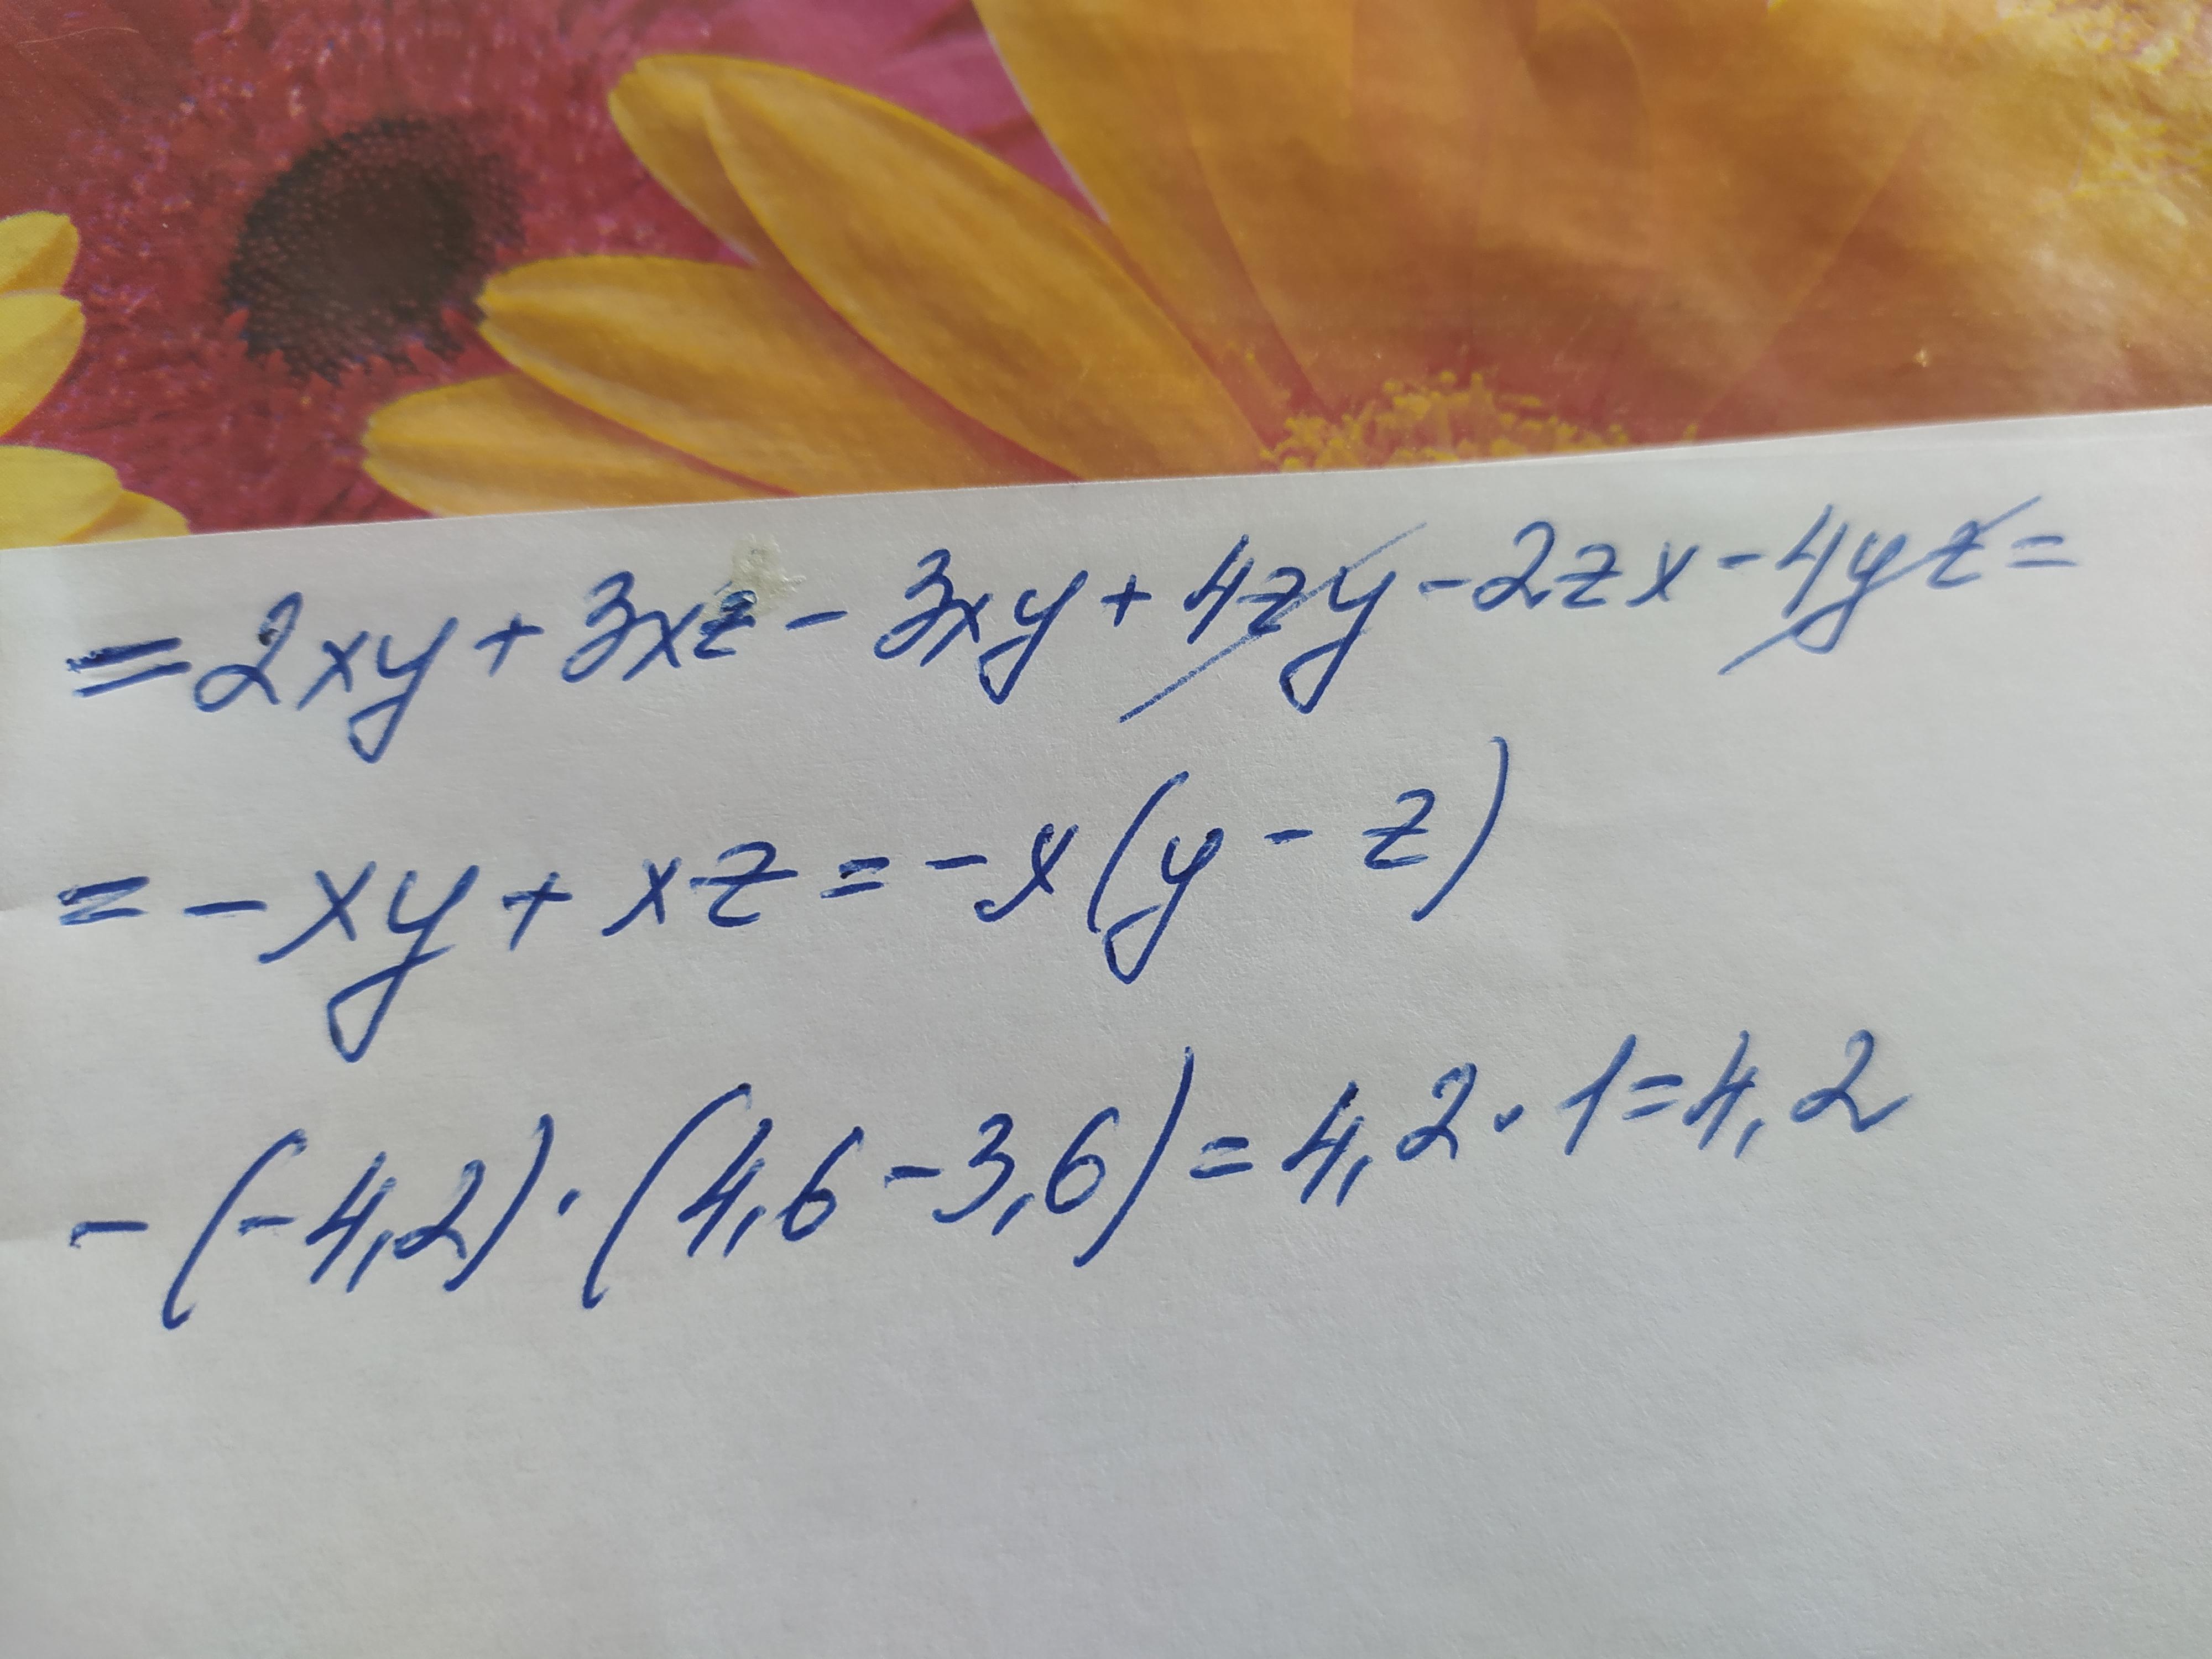 =2xy+3xz-3xy+4zy-2zx-4yz=
=-xy+xz=-x(y-z)
-(-4,2)·(4,6-3,6)=4,2·1=4,2